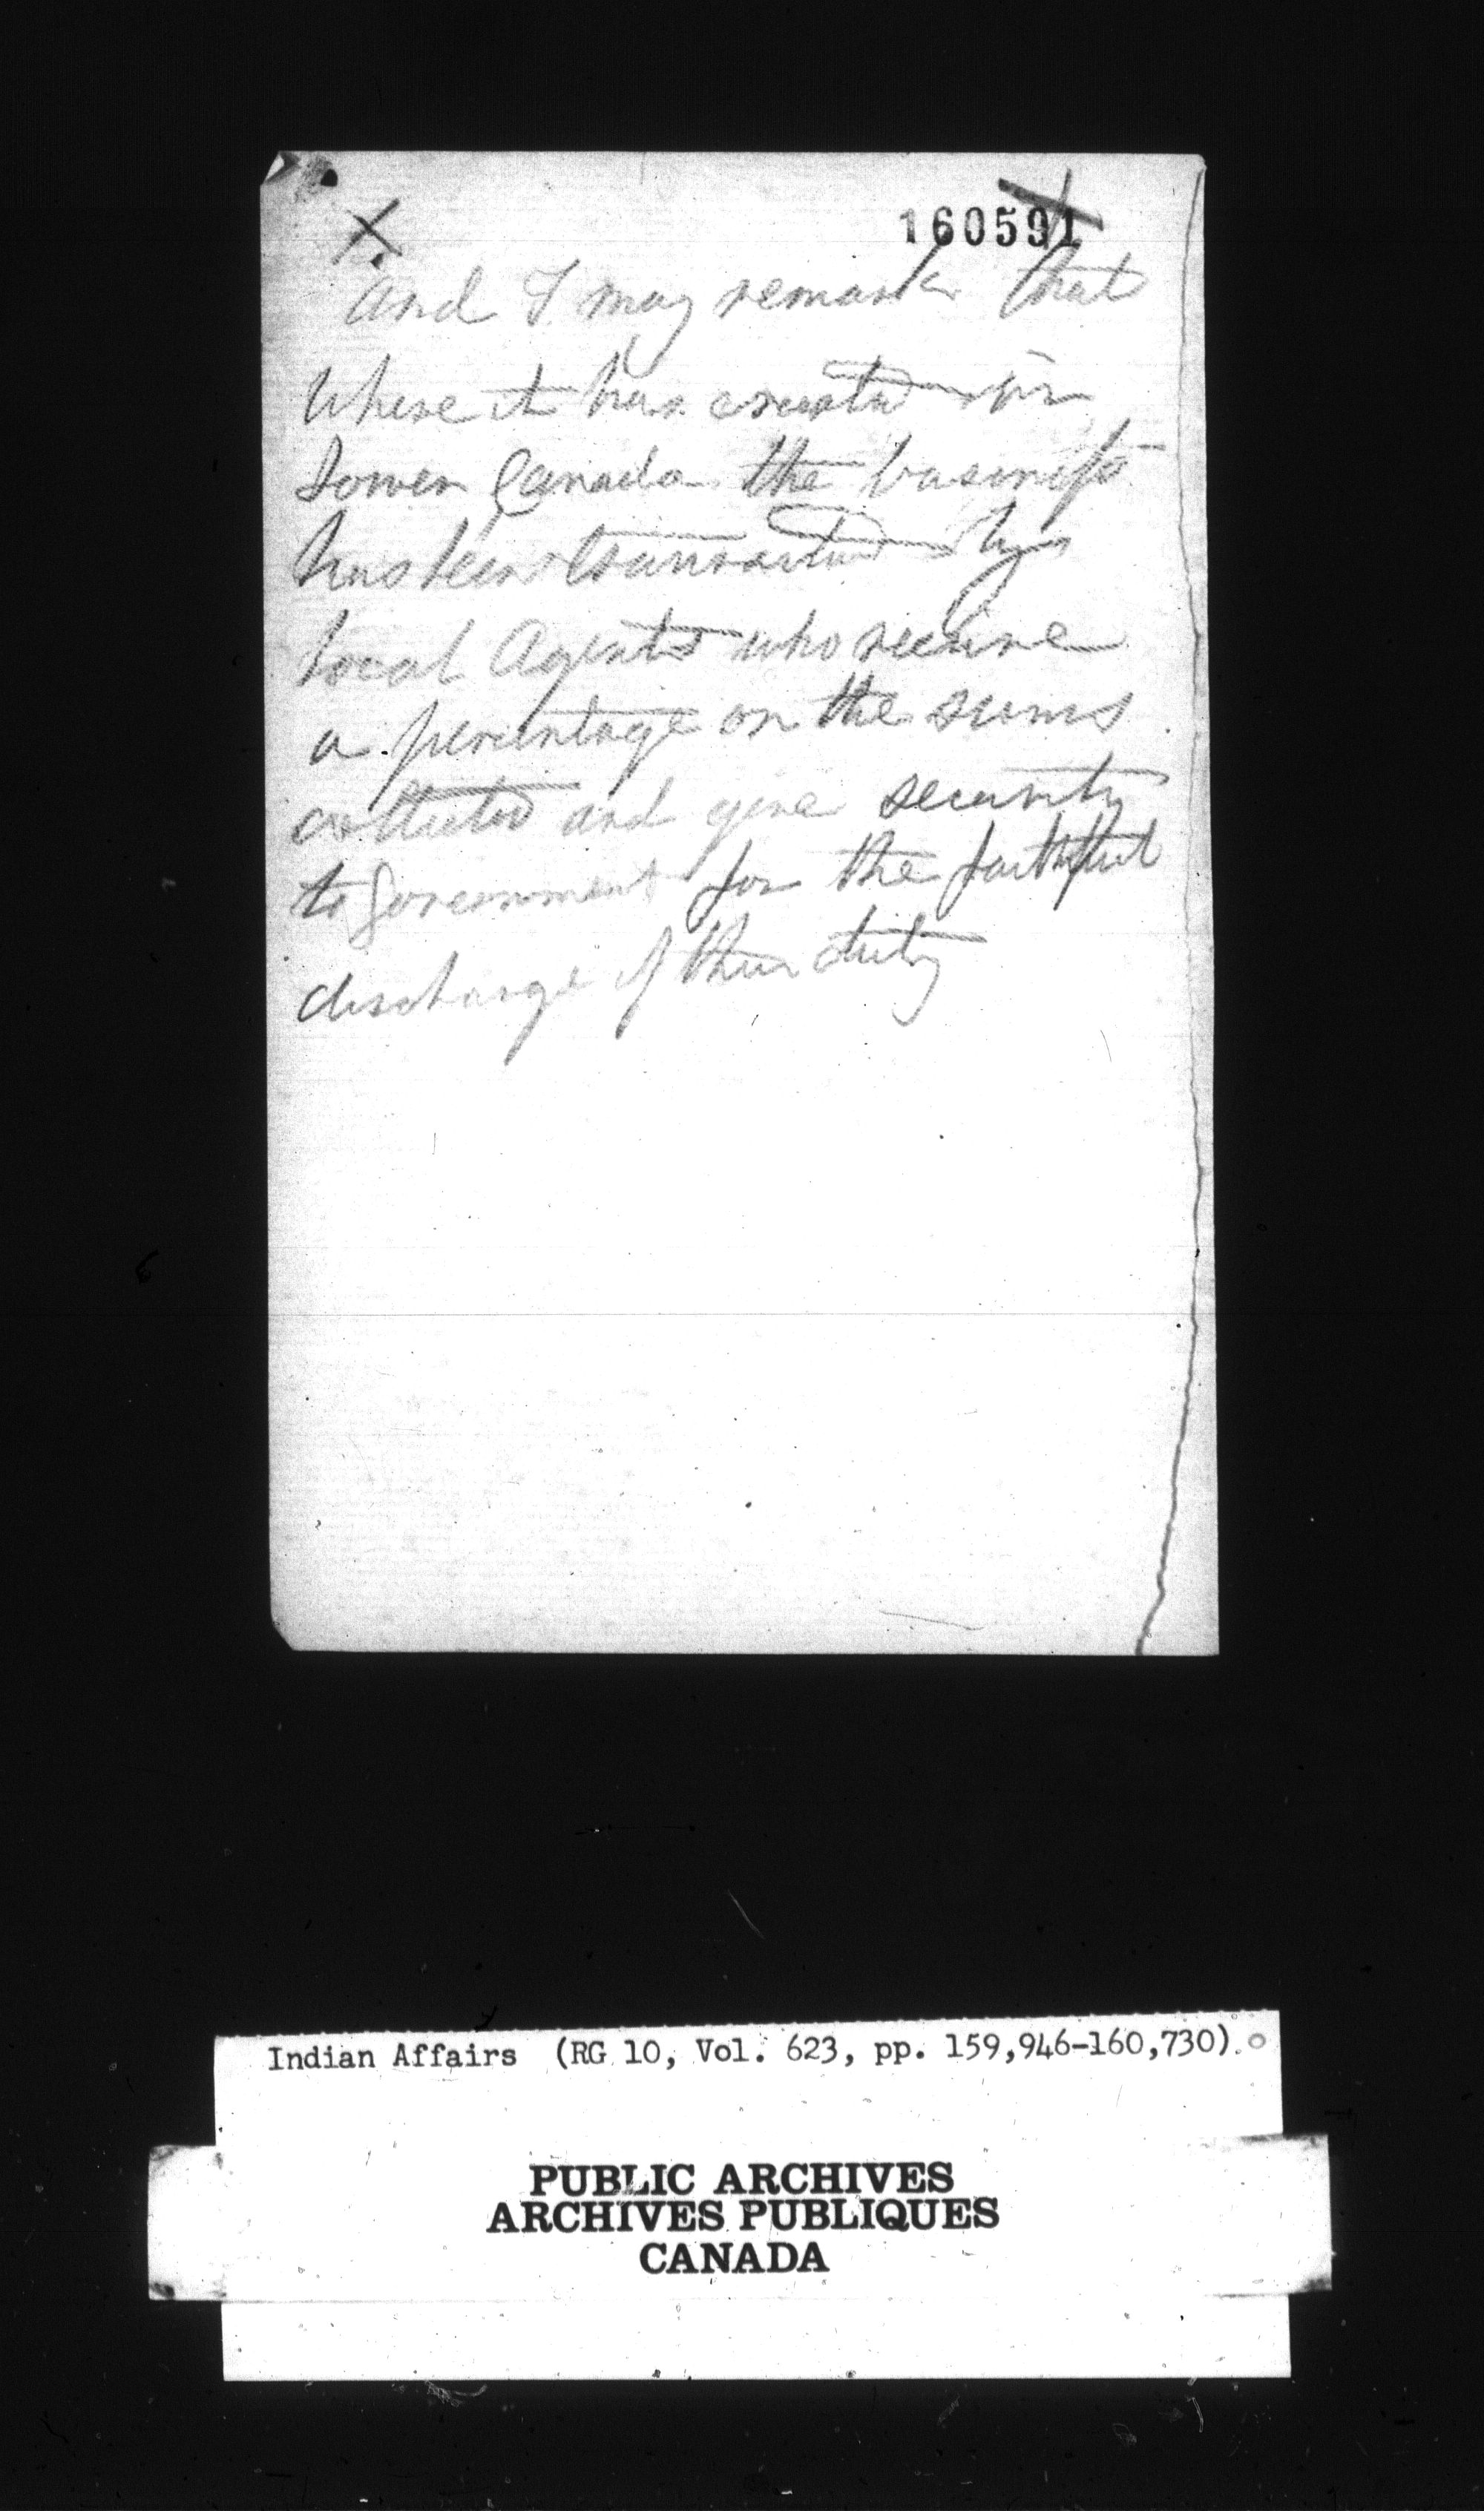 X
160591
and I may remark that
where it has existed in
Lower Canada the business
has been transacted by
local Agents who receive
a percentage on the sums
collected and give security
to Government for the faithful
discharge of their duty
Indian Affairs (RG 10, Vol. 623, pp. 159,946-160,730)
PUBLIC ARCHIVES
ARCHIVES PUBLIQUES
CANADA